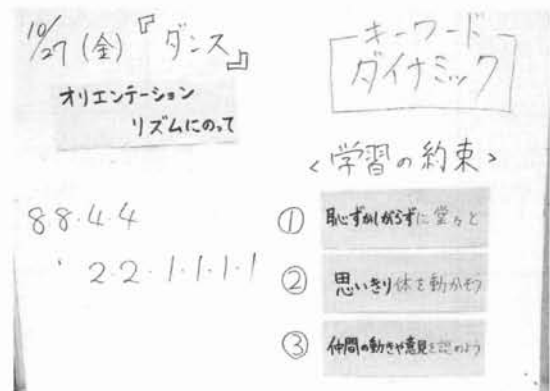 10/27(金)『ダンス』
オリエンテーション
リズムにのって
88.4.4
2.2.1.1.1.1
キーワード
ダイナミック
<学習の約束>
① 恥ずかしがらずに堂々と
② 思いきり体を動かそう
③ 仲間の動きや意見を認めよう